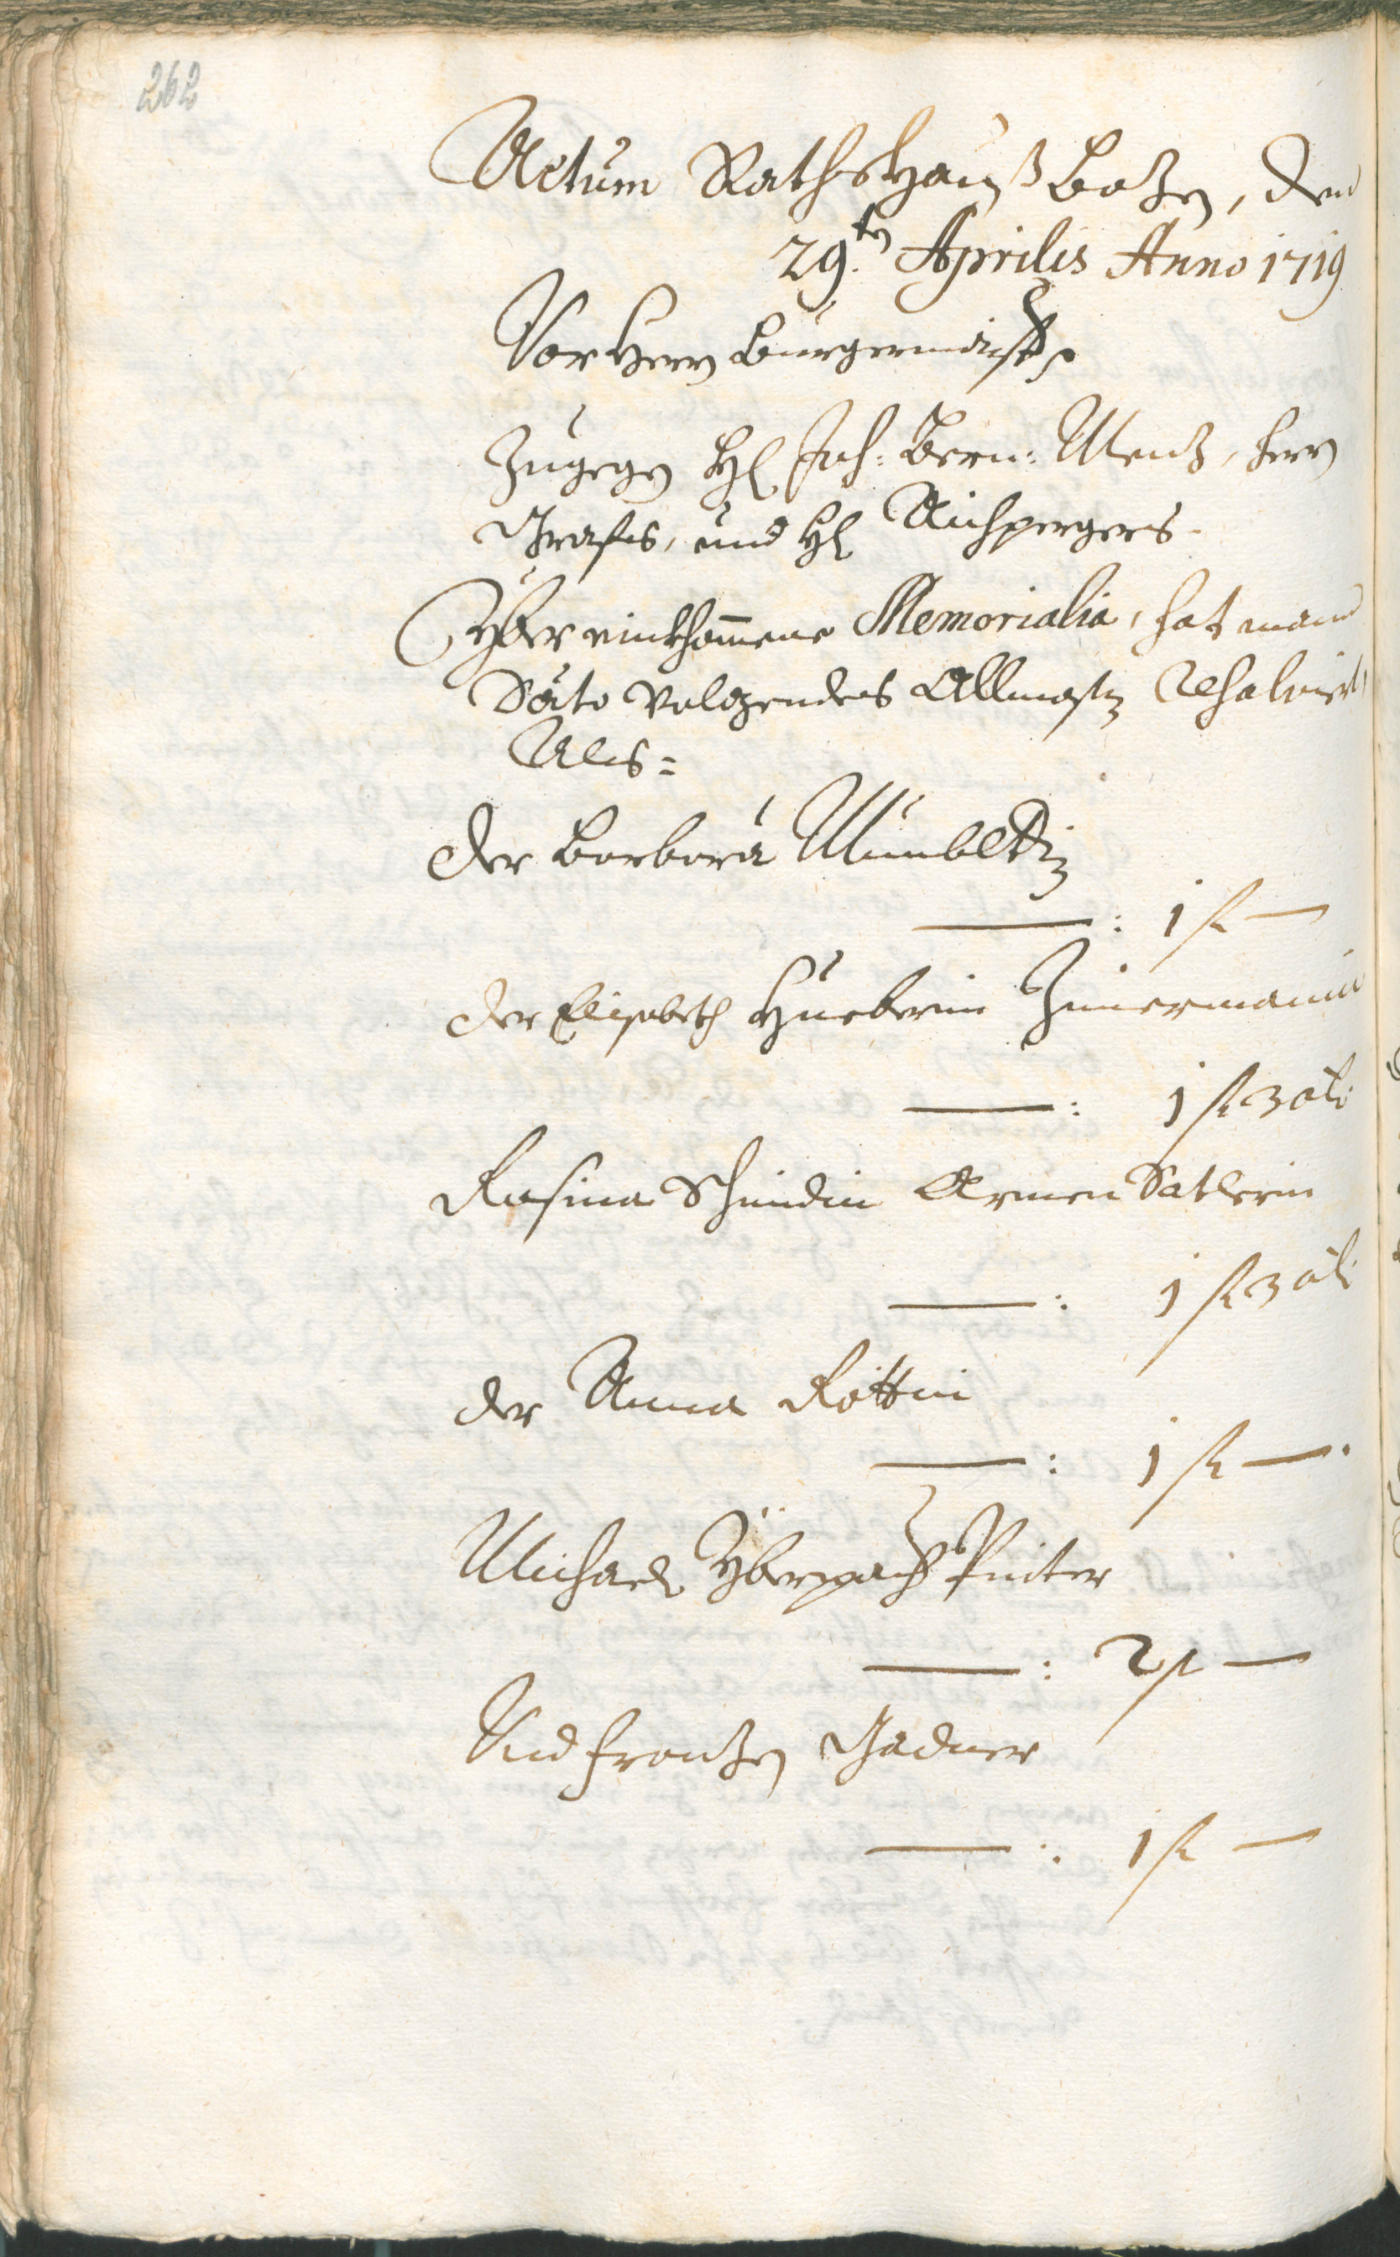 262
Actum Rathshauß Bozen, den
29.ten Aprilis Anno 1719
Vor Herrn Burgermaister
Zugegen Hl Joh: Bern: Menz, Herrn
Grafes, und Hl Aichpergers
Yber einkhommene Memorialia, hat man
Dato volgendes Allmosen Resolviert,
Als=
der Barbara
: 1 fl —
der Elisabeth Hueberin Zimermanin
: 1 fl 30 k
Rosina Schmidin Armen Satlerin
: 1 fl 30 k
der Anna Rottin
: 1 fl —
Michael Yberpacher Pinter
: 2 fl —
Und Franzen Gadner
: 1 fl —